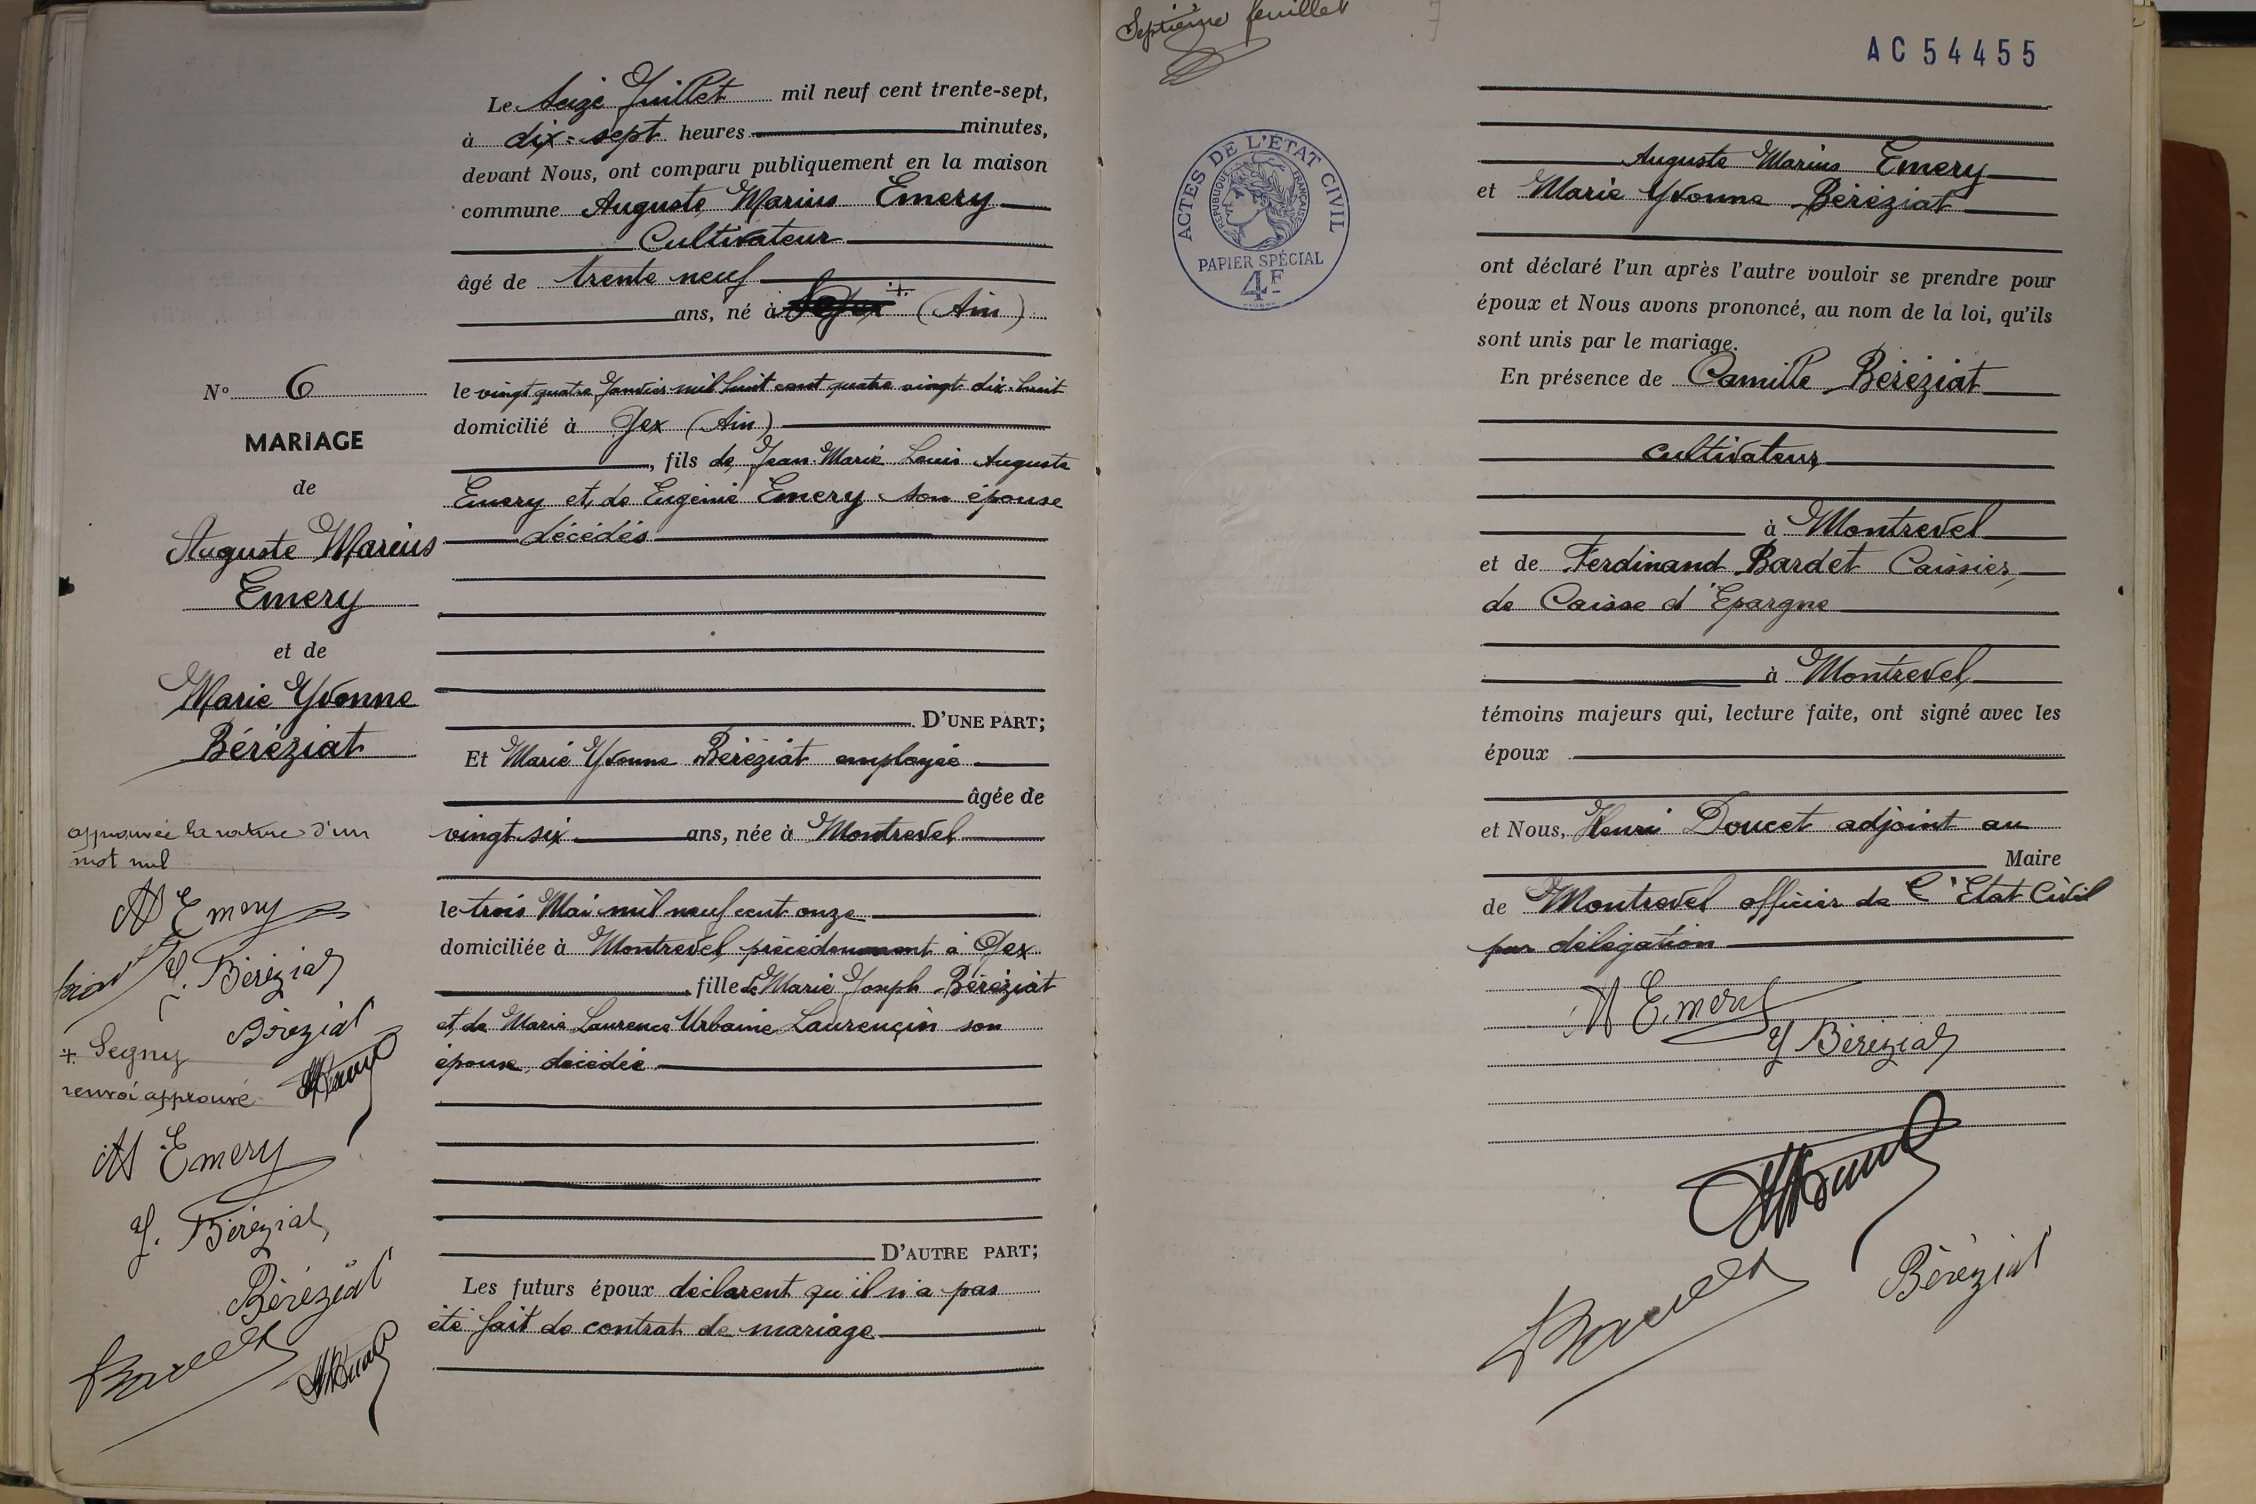 N° 6
MARIAGE
de
Auguste Marius
Emery
et de
Marie Yvonne
Béréziat
approuvée la rature d'un
mot nul
A Emery
Y. Béréziat
Béréziat
+ Segny
renvoi approuvé
A Emery
Y. Béréziat
Béréziat
Le seize Juillet mil neuf cent trente-sept,
à dix-sept heures minutes,
devant Nous, ont comparu publiquement en la maison
commune Auguste Marius Emery
Cultivateur
âgé de trente neuf
ans, né à + (Ain)
le vingt quatre Janvier mil huit cent quatre vingt dix-huit
domicilié à Gex (Ain)
, fils de Jean-Marie Louis Auguste
Emery et de Eugénie Emery son épouse
décédés
D'UNE PART;
Et Marie Yvonne Béréziat employée
âgée de
vingt six ans, née à Montrevel
le trois Mai mil neuf cent onze
domiciliée à Montrevel précédemment à Gex
, fille de Marie Joseph Béréziat
et de Marie Laurence Urbaine Laurençin son
épouse, décédée
D'AUTRE PART;
Les futurs époux déclarent qu'il n'a pas
été fait de contrat de mariage
Septième feuillet
AC 54455
ACTES DE L'ÉTAT CIVIL
RÉPUBLIQUE FRANÇAISE
PAPIER SPÉCIAL
4F
Auguste Marius Emery
et Marie Yvonne Béréziat
ont déclaré l'un après l'autre vouloir se prendre pour
époux et Nous avons prononcé, au nom de la loi, qu'ils
sont unis par le mariage.
En présence de Camille Béréziat
cultivateur
à Montrevel
et de Ferdinand Bardet Caissier
de Caisse d'Epargne
à Montrevel
témoins majeurs qui, lecture faite, ont signé avec les
époux
et Nous, Henri Doucet adjoint au
Maire
de Montrevel officier de l'Etat Civil
par délégation
A Emery
Y Béréziat
Béréziat